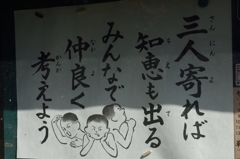 三人寄れば
知恵も出る
みんなで
仲良く
考えよう